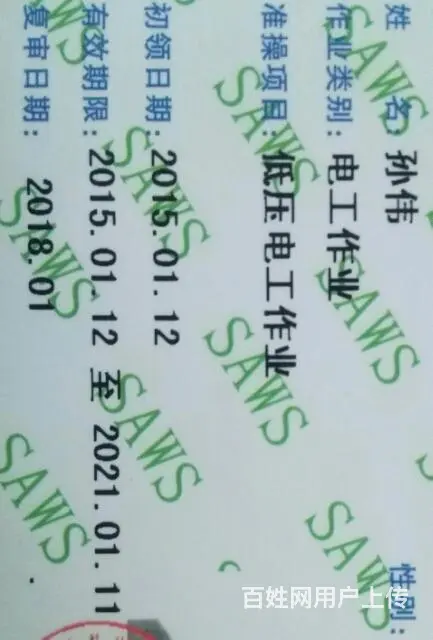 姓 名：孙伟
性别：
作业类别：电工作业
准操项目：低压电工作业
初领日期：2015.01.12
有效期限：2015.01.12 至 2021.01.11
复审日期：2018.01
SAWS
SAWS
SAWS
SAWS
SAWS
SAWS
SAWS
SAWS
SAWS
SAWS
百姓网用户上传